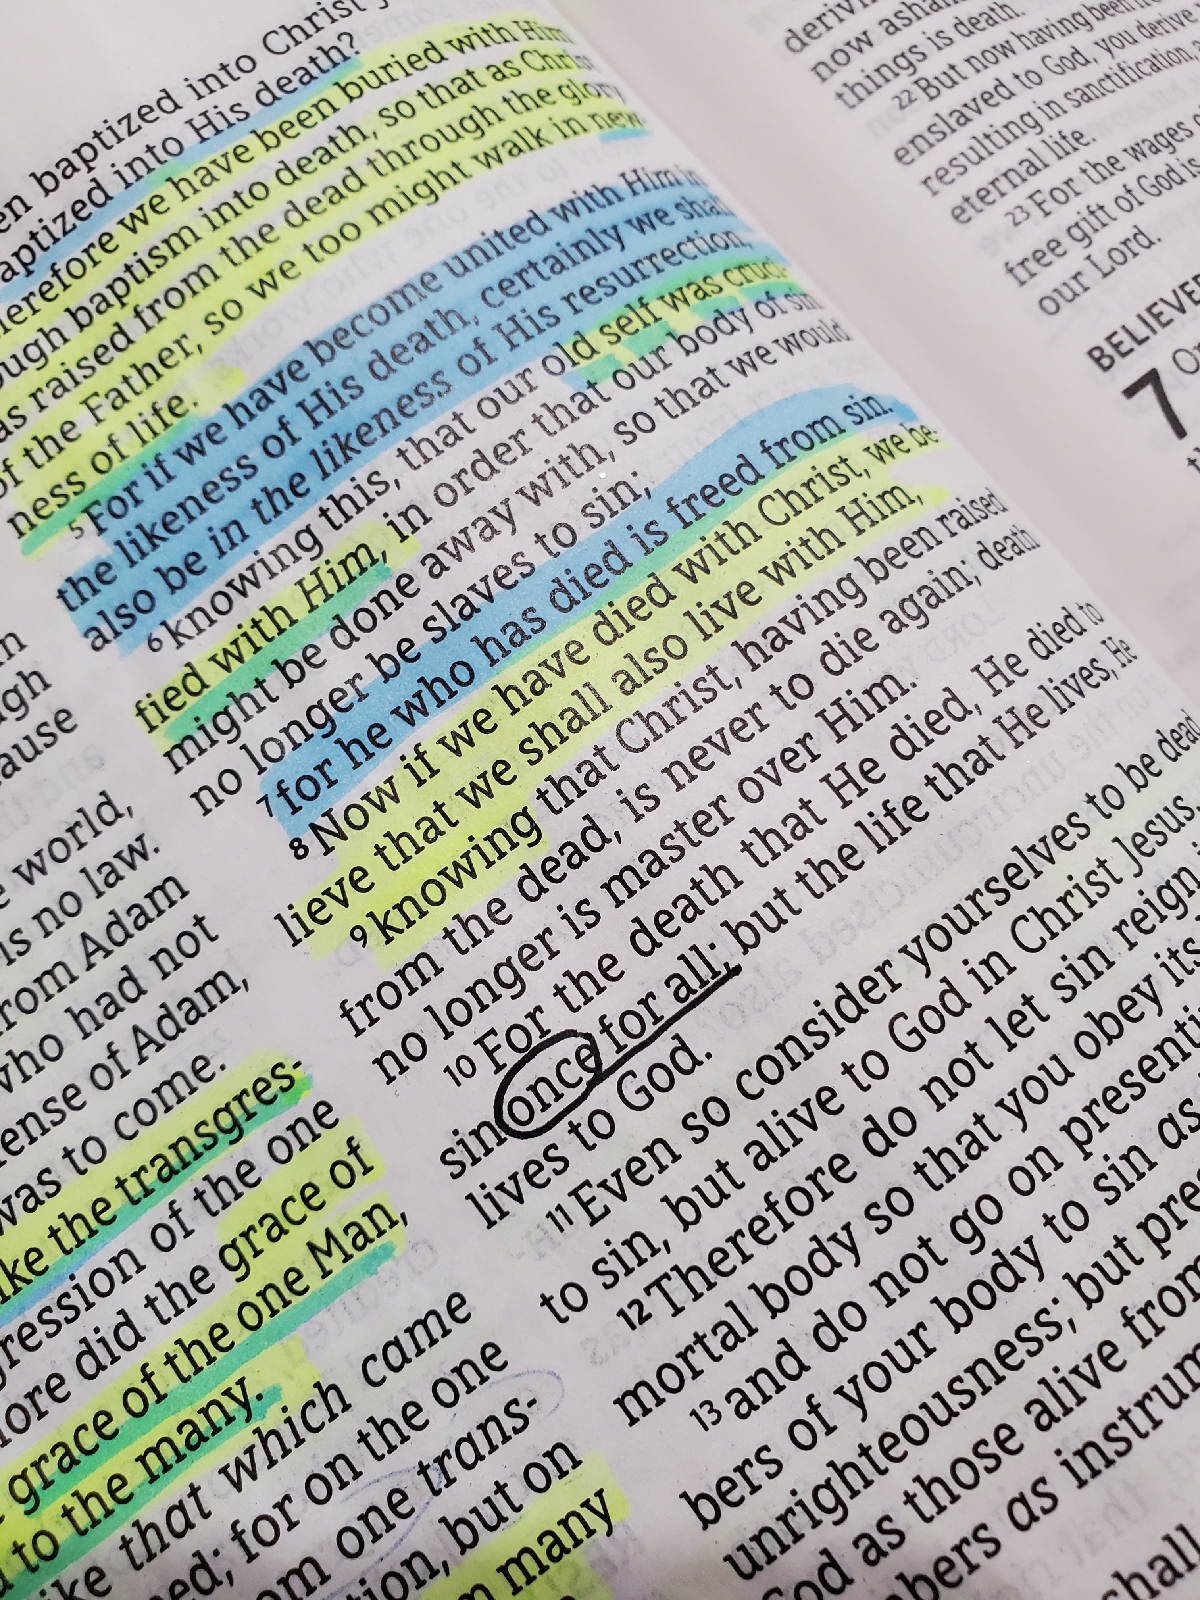 in
ugh
ause
world,
is no law.
from Adam
who had not
ense of Adam,
was to come.
the transgres-
of the one
did the grace of
grace of the one Man,
to the many.
that which came
for on the one
one trans-
but on
many
baptized into Christ
into His death?
we have been buried with Him
baptism into death, so that as Christ
raised from the dead through the glory
of the Father, so we too might walk in new-
ness of life.
5 For if we have become united with Him in
the likeness of His death, certainly we shall
also be in the likeness of His resurrection,
6 knowing this, that our old self was cruci-
fied with Him, in order that our body of sin
might be done away with, so that we would
no longer be slaves to sin;
7 for he who has died is freed from sin.
8 Now if we have died with Christ, we be-
lieve that we shall also live with Him,
9 knowing that Christ, having been raised
from the dead, is never to die again; death
no longer is master over Him.
10 For the death that He died, He died to
sin once for all; but the life that He lives, He
lives to God.
11 Even so consider yourselves to be dead
to sin, but alive to God in Christ Jesus.
12 Therefore do not let sin reign
mortal body so that you obey its
13 and do not go on presenti
bers of your body to sin as
unrighteousness; but pre
God as those alive from
as instrum
shall
now
things is death.
22 But now having been
enslaved to God, you derive
resulting in sanctification,
eternal life.
23 For the wages
free gift of God is
our Lord.
BELIEVE
7